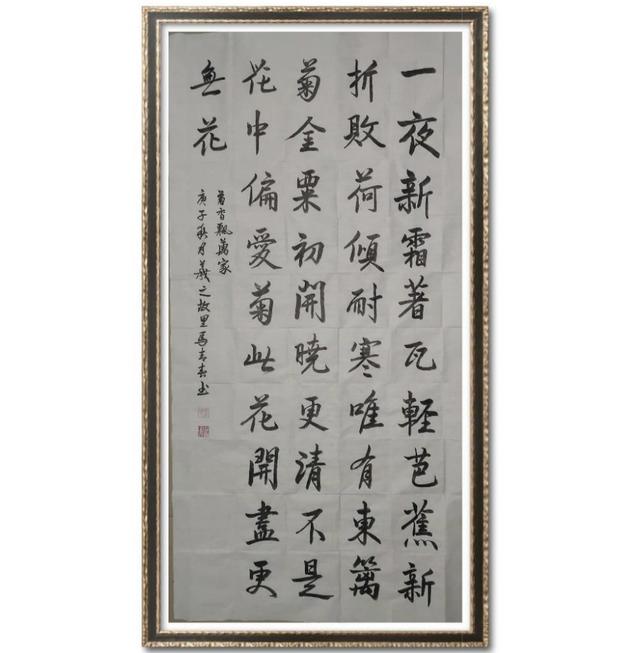 一夜新霜著瓦輕芭蕉新
折敗荷傾耐寒唯有東籬
菊金粟初開曉更清不是
花中偏愛菊此花開盡更
無花
菊香飄萬家
庚子秋月羲之故里馬書